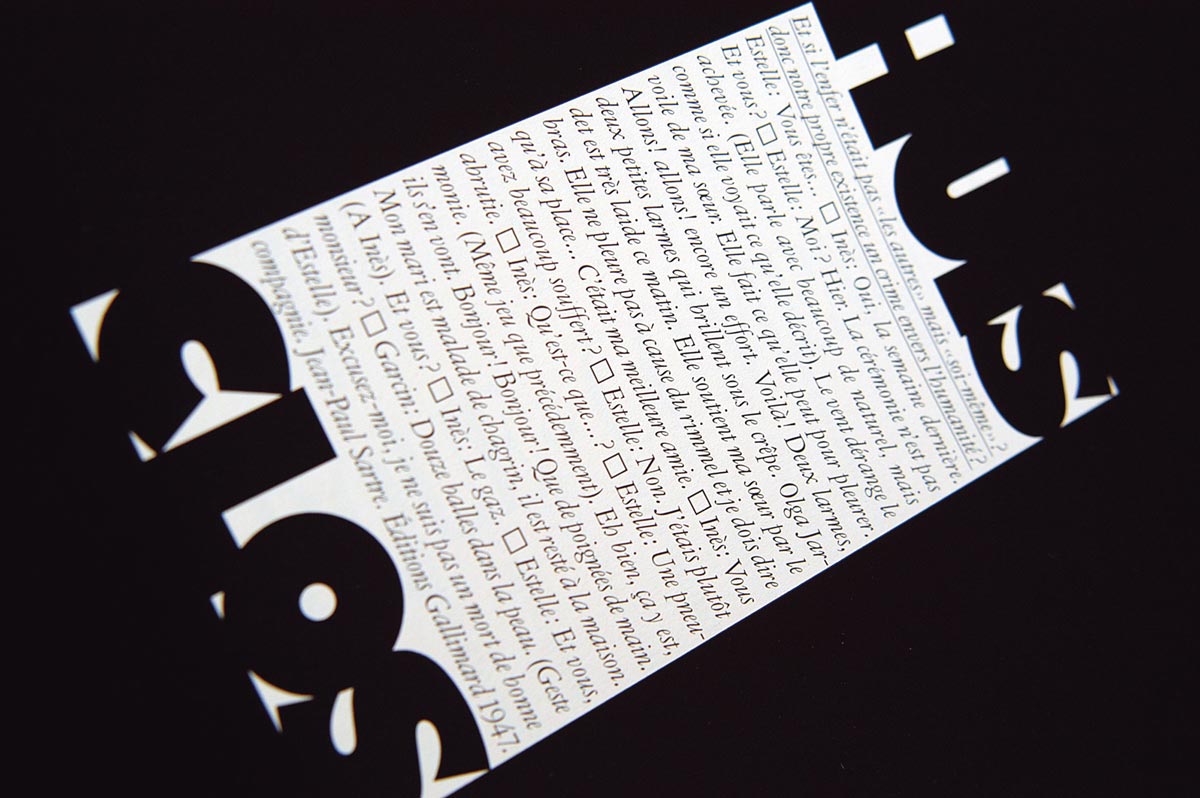 Et si l'enfer n'était pas «les autres», mais «soi-même»?
donc notre propre existence un crime envers l'humanité?
Estelle: Vous êtes... □ Inès: Oui, la semaine dernière.
Et vous? □ Estelle: Moi? Hier. La cérémonie n'est pas
achevée. (Elle parle avec beaucoup de naturel, mais
comme si elle voyait ce qu'elle décrit). Le vent dérange le
voile de ma sœur. Elle fait ce qu'elle peut pour pleurer.
Allons! allons! encore un effort. Voilà! Deux larmes,
deux petites larmes qui brillent sous le crêpe. Olga Jar-
det est très laide ce matin. Elle soutient ma sœur par le
bras. Elle ne pleure pas à cause du rimmel et je dois dire
qu'à sa place... C'était ma meilleure amie. □ Inès: Vous
avez beaucoup souffert? □ Estelle: Non. J'étais plutôt
abrutie. □ Inès: Qu'est-ce que...? □ Estelle: Une pneu-
monie. (Même jeu que précédemment). Eh bien, ça y est,
ils s'en vont. Bonjour! Bonjour! Que de poignées de main.
Mon mari est malade de chagrin, il est resté à la maison.
(A Inès). Et vous? □ Inès: Le gaz. □ Estelle: Et vous,
monsieur? □ Garcin: Douze balles dans la peau. (Geste
d'Estelle). Excusez-moi, je ne suis pas un mort de bonne
compagnie. Jean-Paul Sartre. Éditions Gallimard 1947.